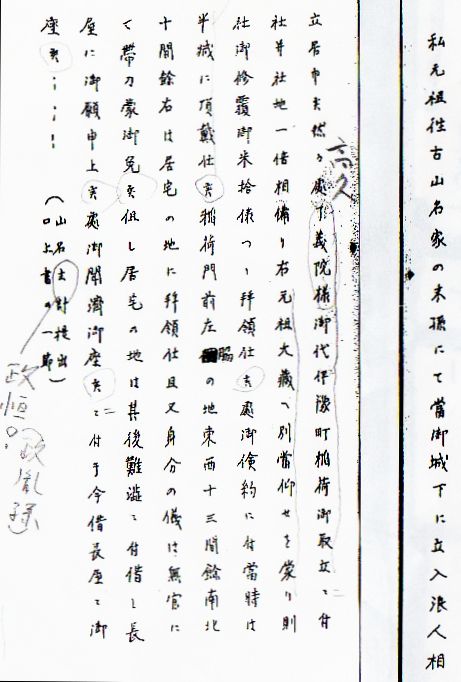 私元祖往古山名家の末孫にて當御城下に立入浪人相
立居申候然る處下義院様御代伊豫町稲荷御取立ニ付
高久
社并社地一倍相備り右元祖大蔵へ別當仰せを蒙り則
社御修覆御米拾俵つゝ拝領仕候處御倹約に付當時は
半減に頂戴仕候稲荷門前左脇の地東西十三間餘南北
十間餘右は居宅の地に拝領仕且又身分の儀は無官に
て帯刀蒙御免候但し居宅の地は其後難澁ニ付借し長
屋に御願申上候處御聞濟御座候ニ付于今借長屋ニ御
座候；；！
（山名主計提出
口上書の一節）
政恒？政胤